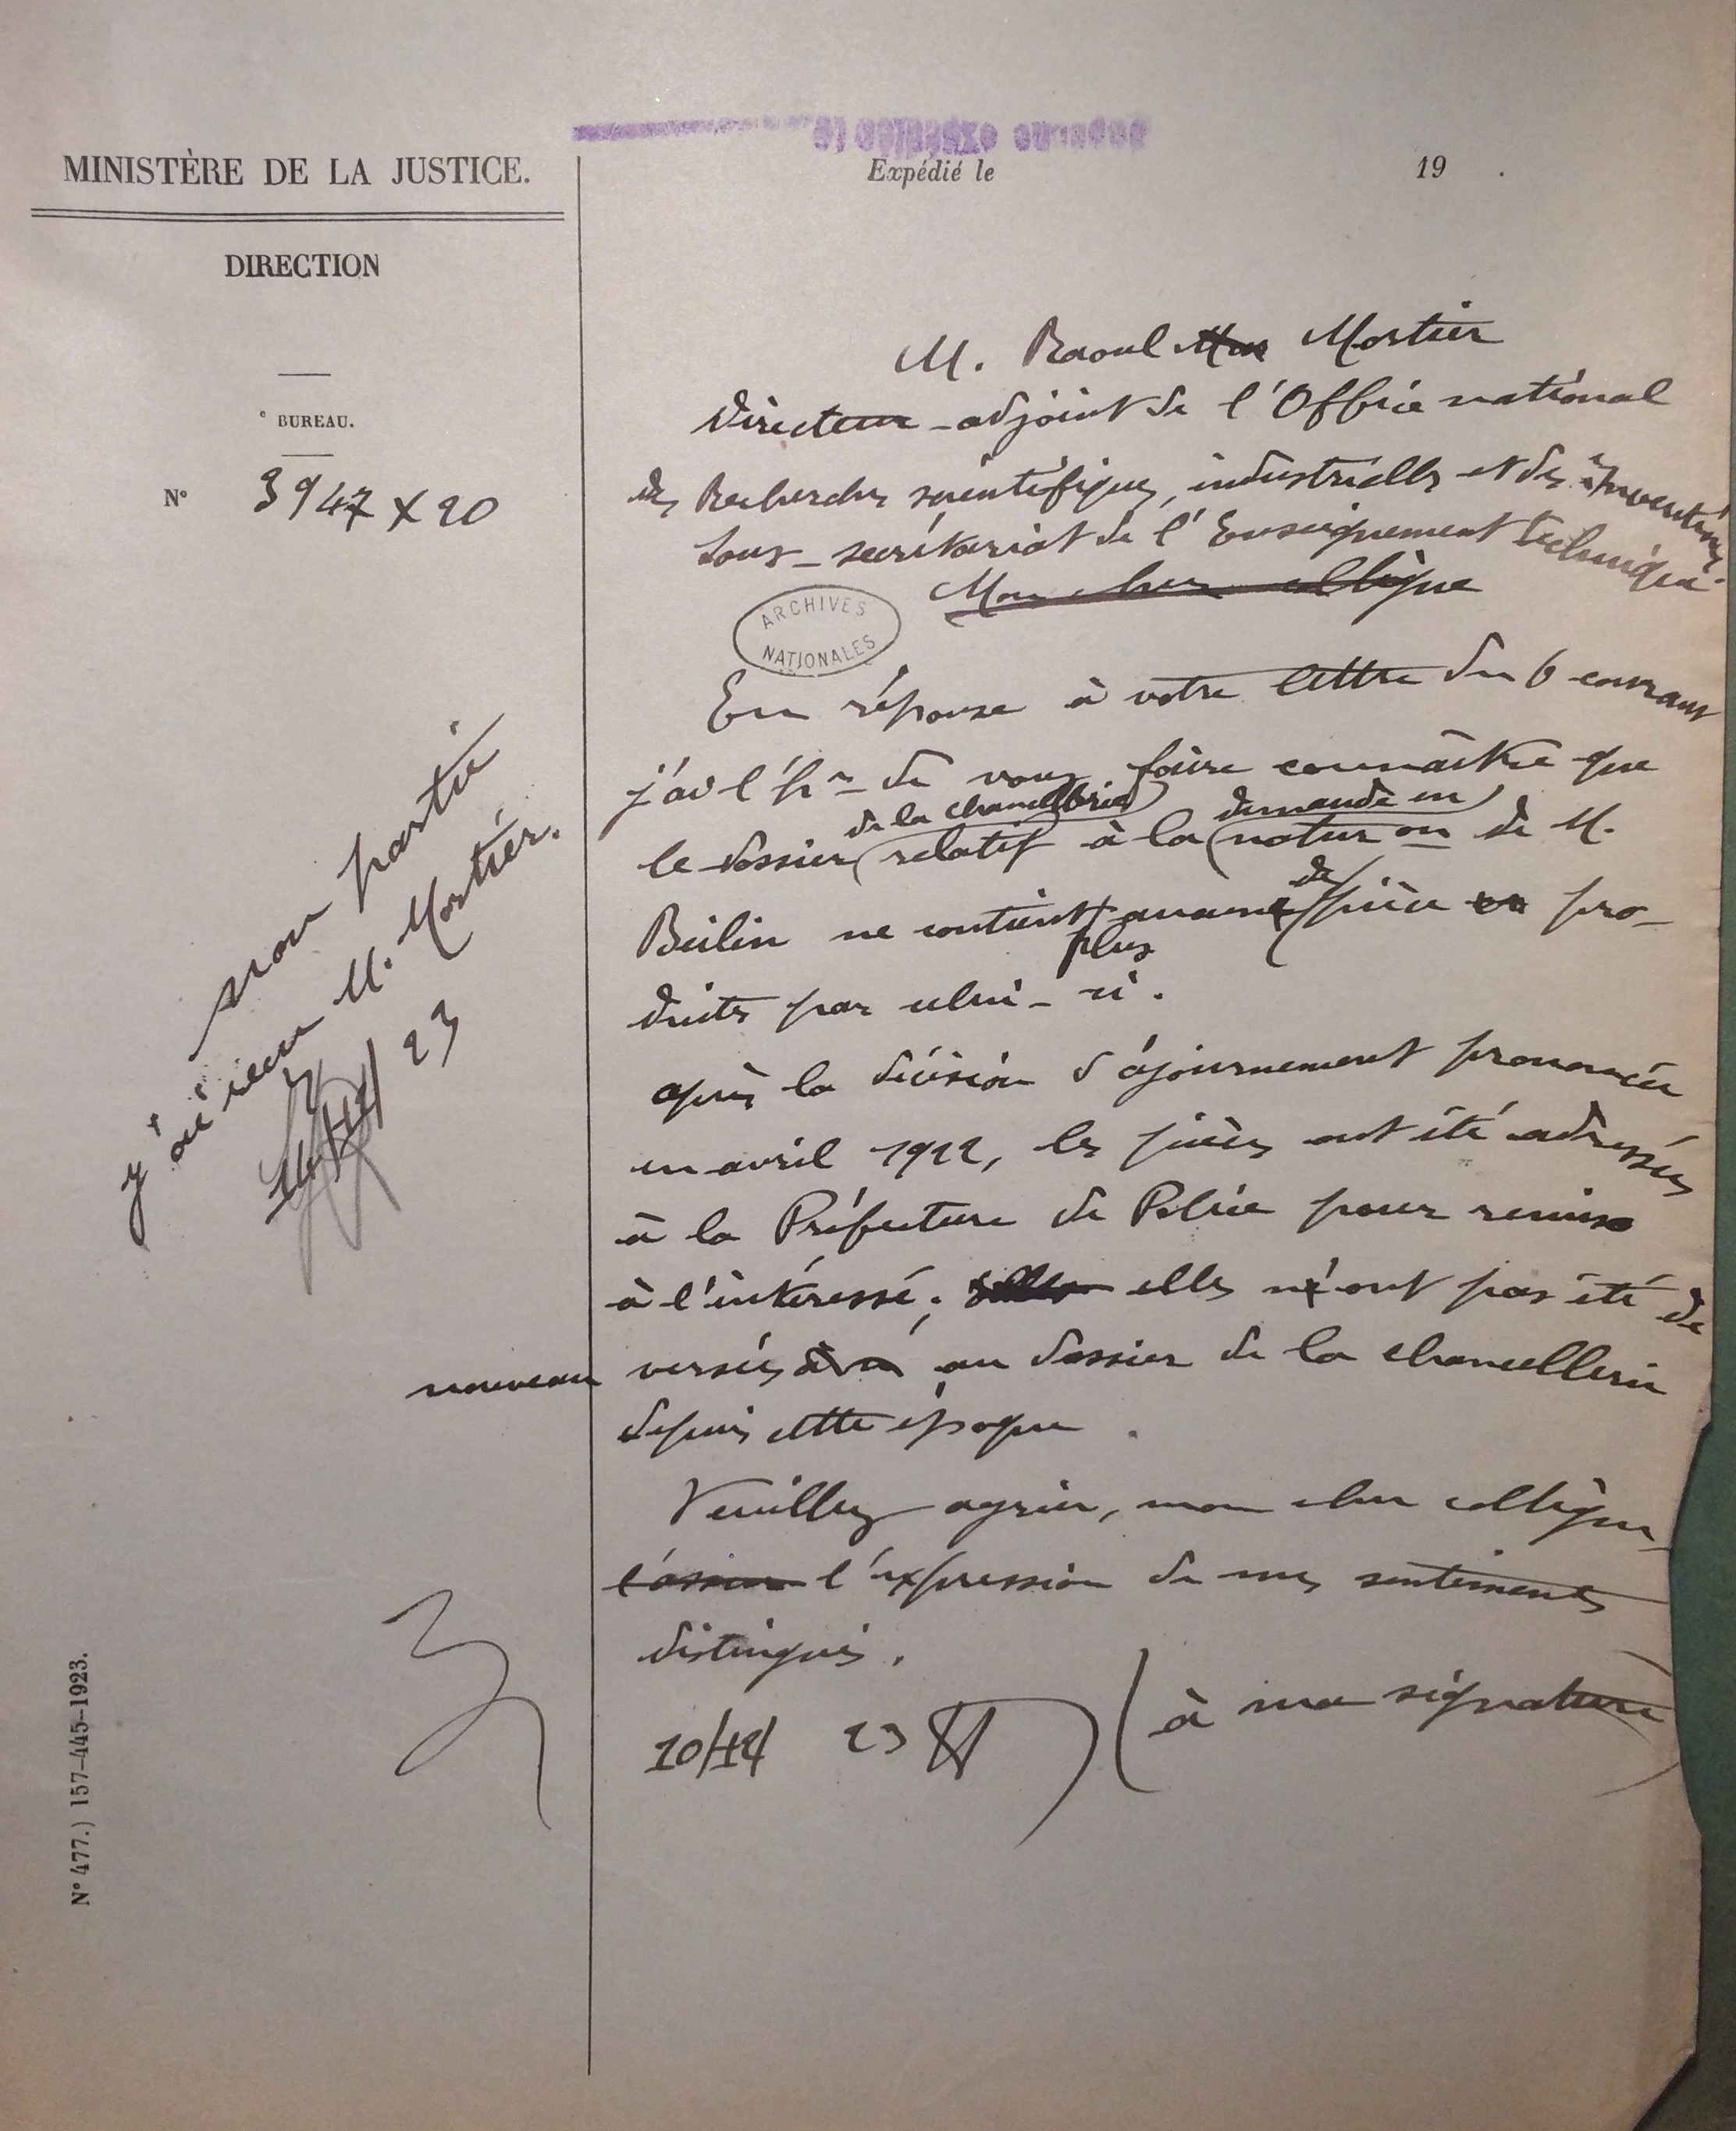 MINISTÈRE DE LA JUSTICE.
DIRECTION
e BUREAU.
N° 3947 X 20
Expédié le 19 .
M. Raoul Mortier
Directeur-adjoint de l'Office national
des Recherches scientifiques, industrielles et des inventions
Sous-secrétariat de l'Enseignement technique
Mon cher collègue
ARCHIVES
NATIONALES
En réponse à votre lettre du 6 courant
j'ai l'hr de vous faire connaître que
de la chancellerie demande en
le dossier relatif à la natur on de M.
de
Beilin ne contient aucune pièce pro-
plus
duites par celui-ci.
après la décision d'ajournement prononcée
en avril 1922, les pièces ont été adressées
à la Préfecture de Police pour remise
à l'intéressé; elles n'ont pas été de
nouveau versées au dossier de la chancellerie
depuis cette époque.
Veuillez agréer, mon cher collègue,
l'expression de mes sentiments
distingués.
10/12/23
(à ma signature)
non partie
j'ai reçu M. Mortier.
23
N° 477.) 157-445-1923.